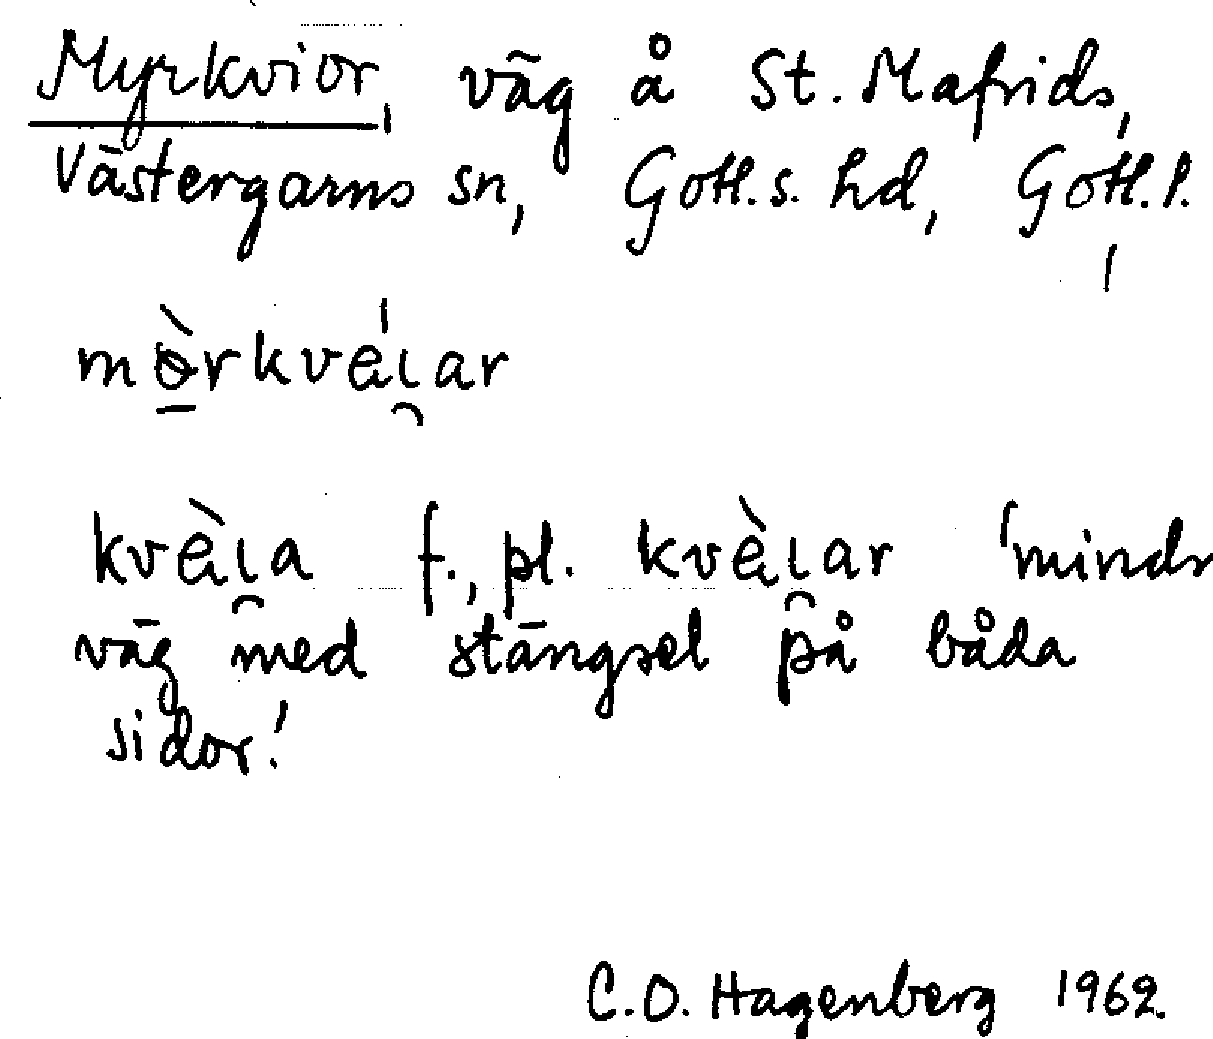 Myrkvior, väg å St. Mafrids,
Västergarns sn, Gotl. s. hd, Gotl. l.
mə̱̀rkvèi̯ar
kvèi̯a f., pl. kvèi̯ar 'mindr
väg med stängsel på båda
sidor.'
C.O. Hagenberg 1962.